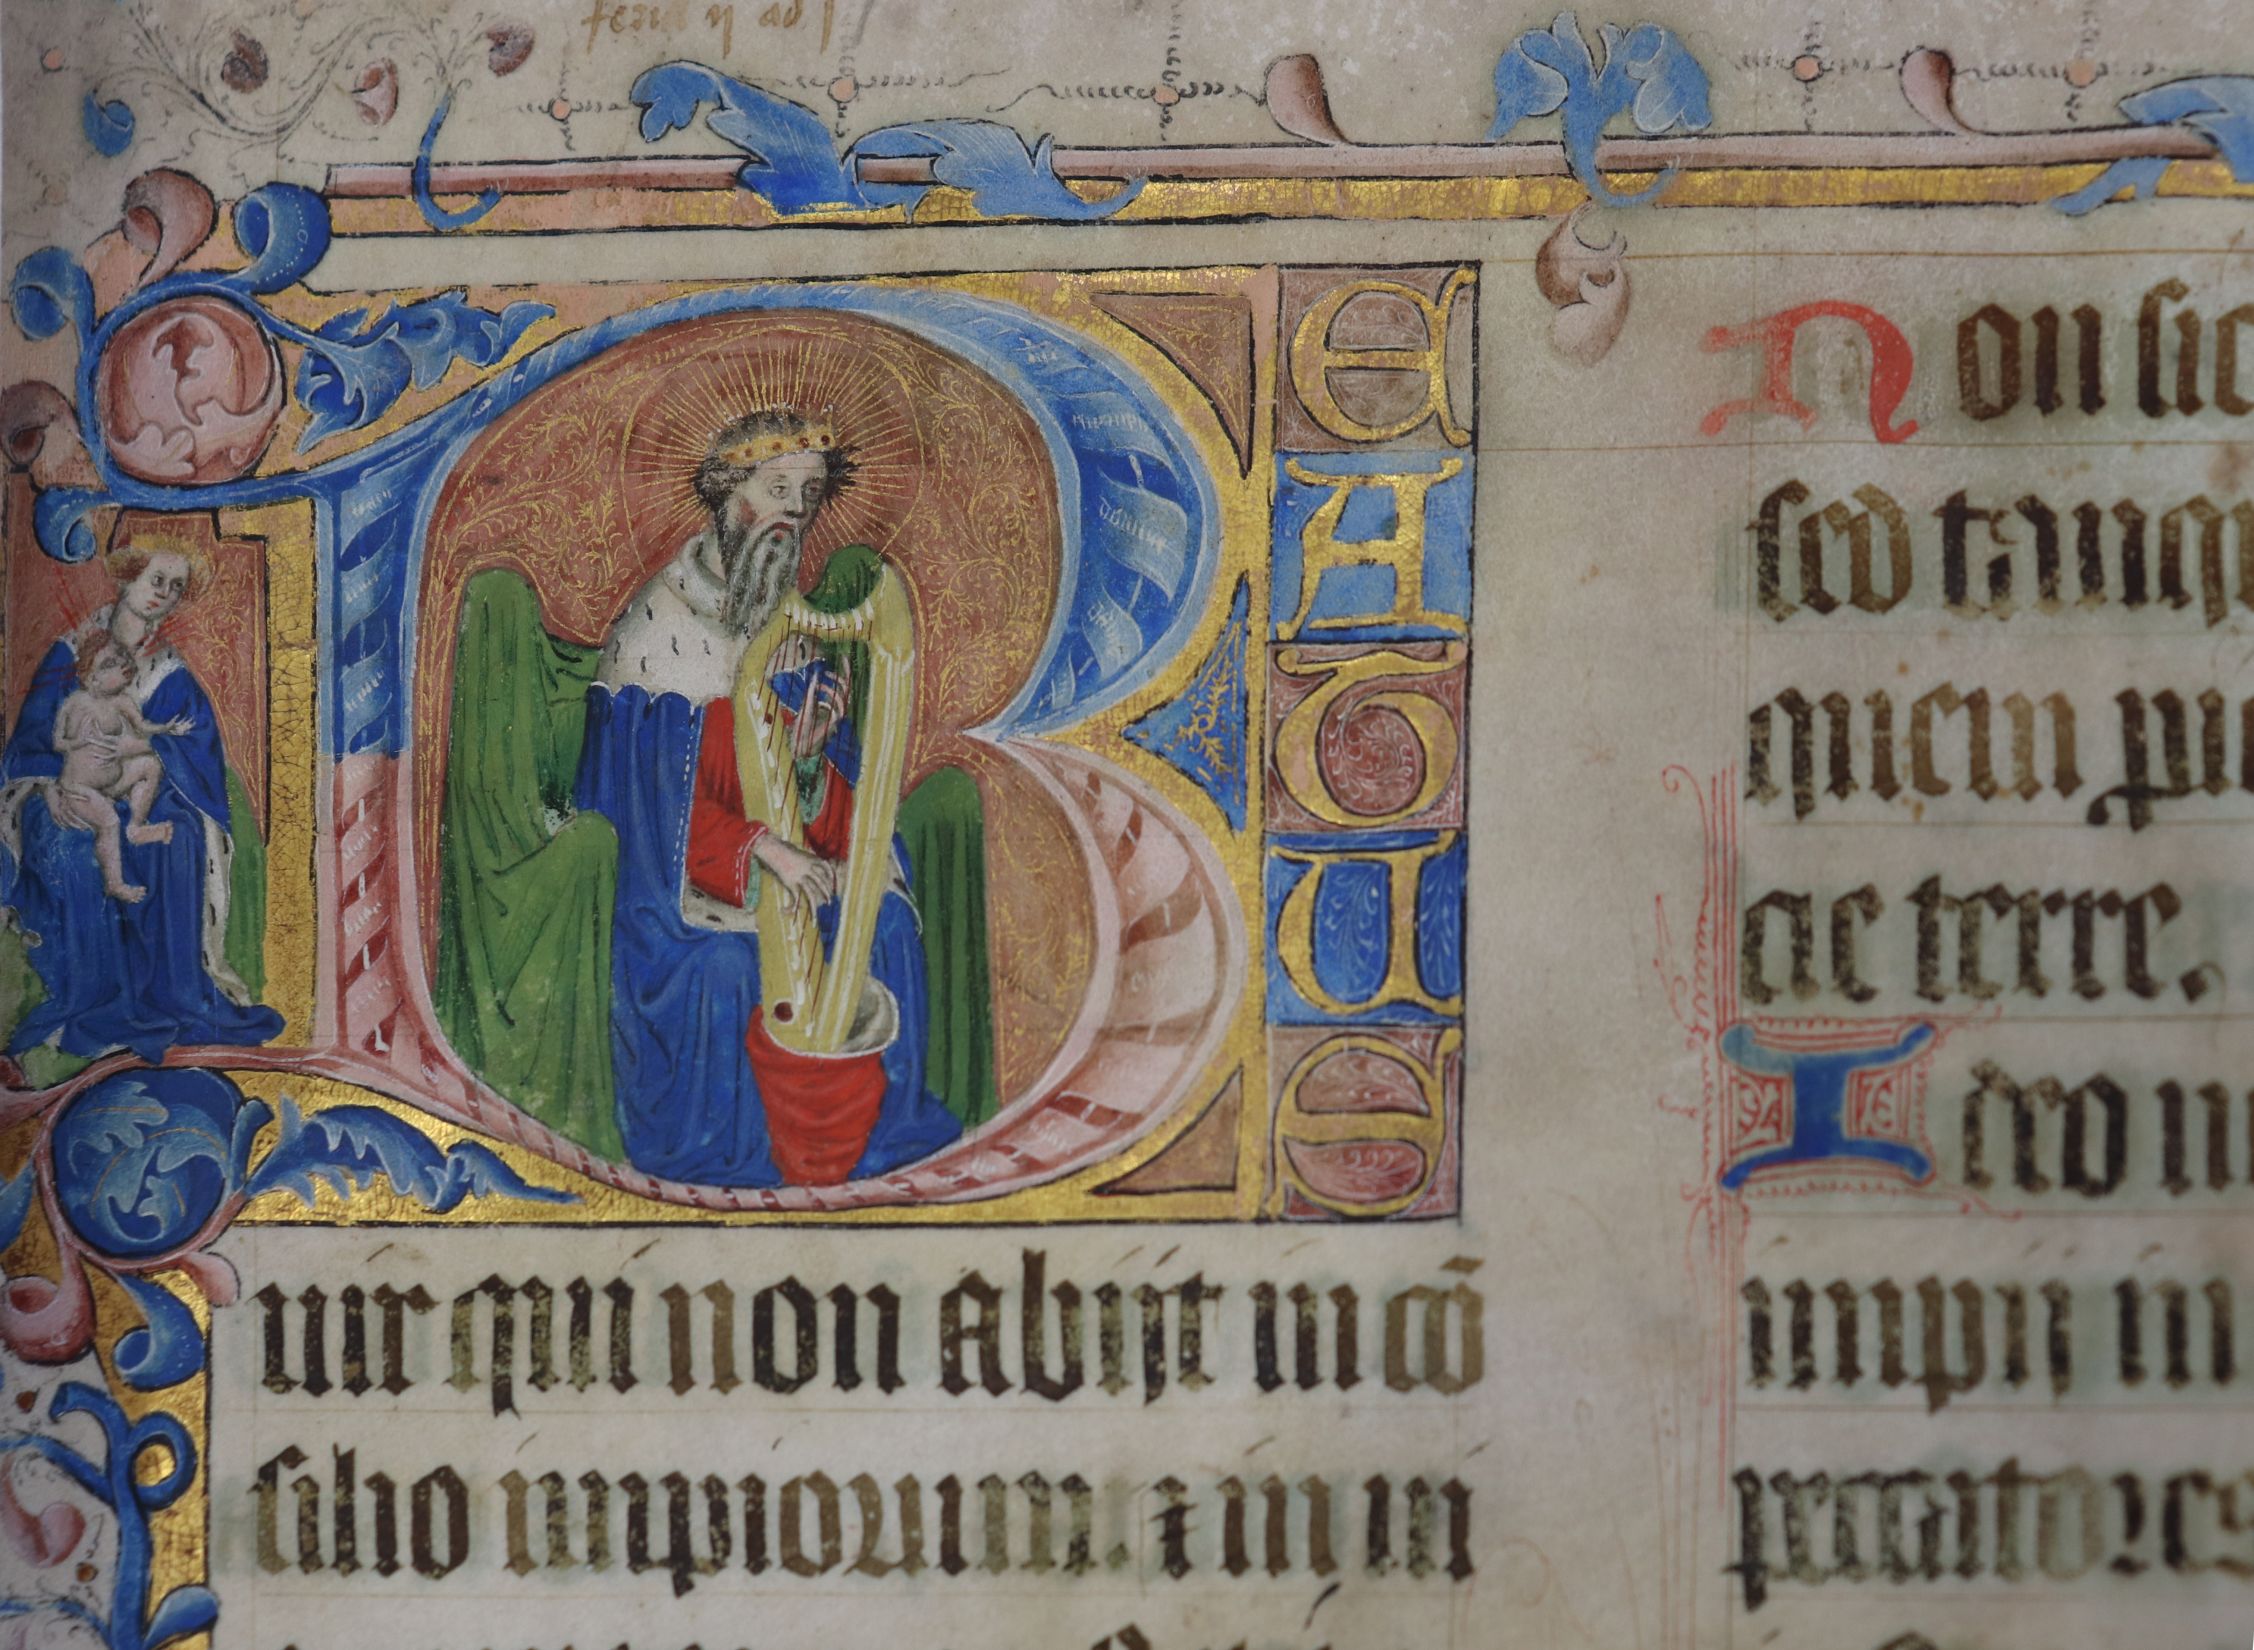 feria ij ad j
BEATUS
uir qui non abijt in cō
silio impiorum. ⁊ in ui
Non sic
sed tanq
quem pro
ae terre.
Ideo n
impij in
peccatores